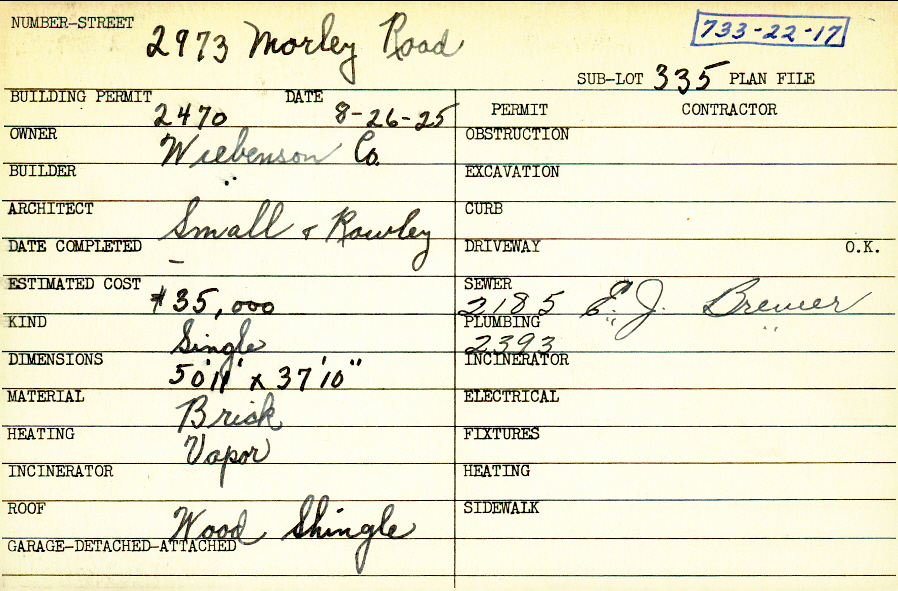 NUMBER-STREET 2973 Morley Road 733-22-17
SUB-LOT 335 PLAN FILE
BUILDING PERMIT 2470 DATE 8-26-25
OWNER Wiebenson Co.
BUILDER "
ARCHITECT Small & Rowley
DATE COMPLETED -
ESTIMATED COST $35,000
KIND Single
DIMENSIONS 50'11" x 37'10"
MATERIAL Brick
HEATING Vapor
INCINERATOR
ROOF Wood Shingle
GARAGE-DETACHED-ATTACHED
PERMIT CONTRACTOR
OBSTRUCTION
EXCAVATION
CURB
DRIVEWAY O.K.
SEWER 2185 E. J. Brewer
PLUMBING 2393 " "
INCINERATOR
ELECTRICAL
FIXTURES
HEATING
SIDEWALK